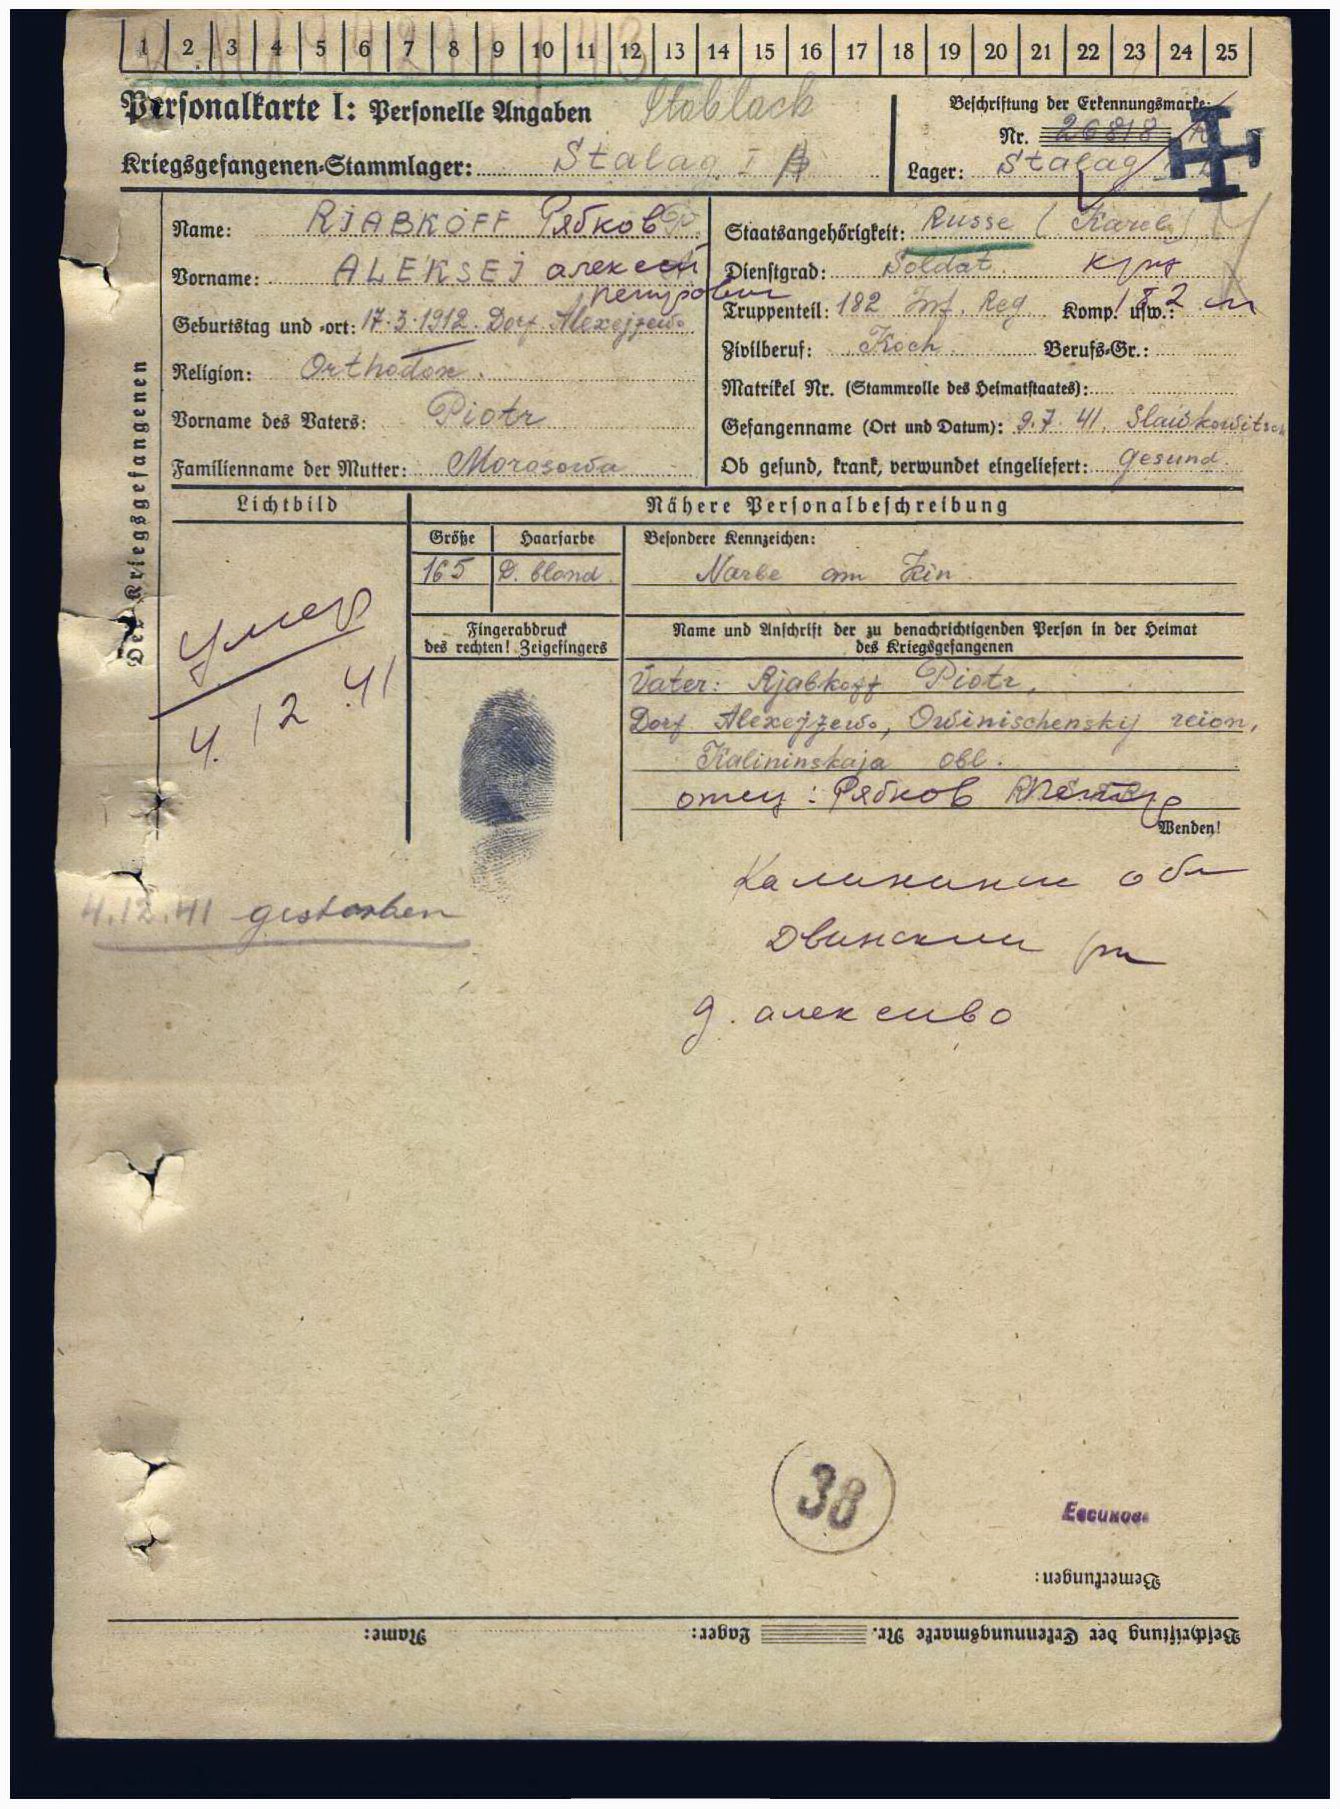 1 2 3 4 5 6 7 8 9 10 11 12 13 14 15 16 17 18 19 20 21 22 23 24 25
Personalkarte I: Personelle Angaben Stablack
Kriegsgefangenen-Stammlager: Stalag I A
Beschriftung der Erkennungsmarke:
Nr. 26818
Lager: Stalag
Des Kriegsgefangenen
Name: RJABKOFF Рябков
Vorname: ALEKSEJ алексей
петрович
Geburtstag und -ort: 17.3.1912. Dorf Alexejzewo
Religion: Orthodox.
Vorname des Vaters: Piotr
Familienname der Mutter: Morosowa
Staatsangehörigkeit: Russe (Karel)
Dienstgrad: Soldat
Truppenteil: 182 Inf. Reg Komp. usw.: 182
Zivilberuf: Koch Berufs-Gr.:
Matrikel Nr. (Stammrolle des Heimatstaates):
Gefangenname (Ort und Datum): 9.7.41. Slawkowitsch
Ob gesund, krank, verwundet eingeliefert: gesund
Lichtbild
Nähere Personalbeschreibung
Größe Haarfarbe Besondere Kennzeichen:
165 D. blond Narbe am Kin
Fingerabdruck
des rechten! Zeigefingers
Name und Anschrift der zu benachrichtigenden Person in der Heimat
des Kriegsgefangenen
Vater: Rjabkoff Piotr,
Dorf Alexejzewo, Owinischenskij reion,
Kalininskaja obl.
отец: Рябков Петр
Wenden!
умер
4.12.41
4.12.41 gestorben
Калинини обл
Двински рн
д. алексиво
38
Евсиков
Bemerkungen:
Beschriftung der Erkennungsmarke Nr. Lager: Name: